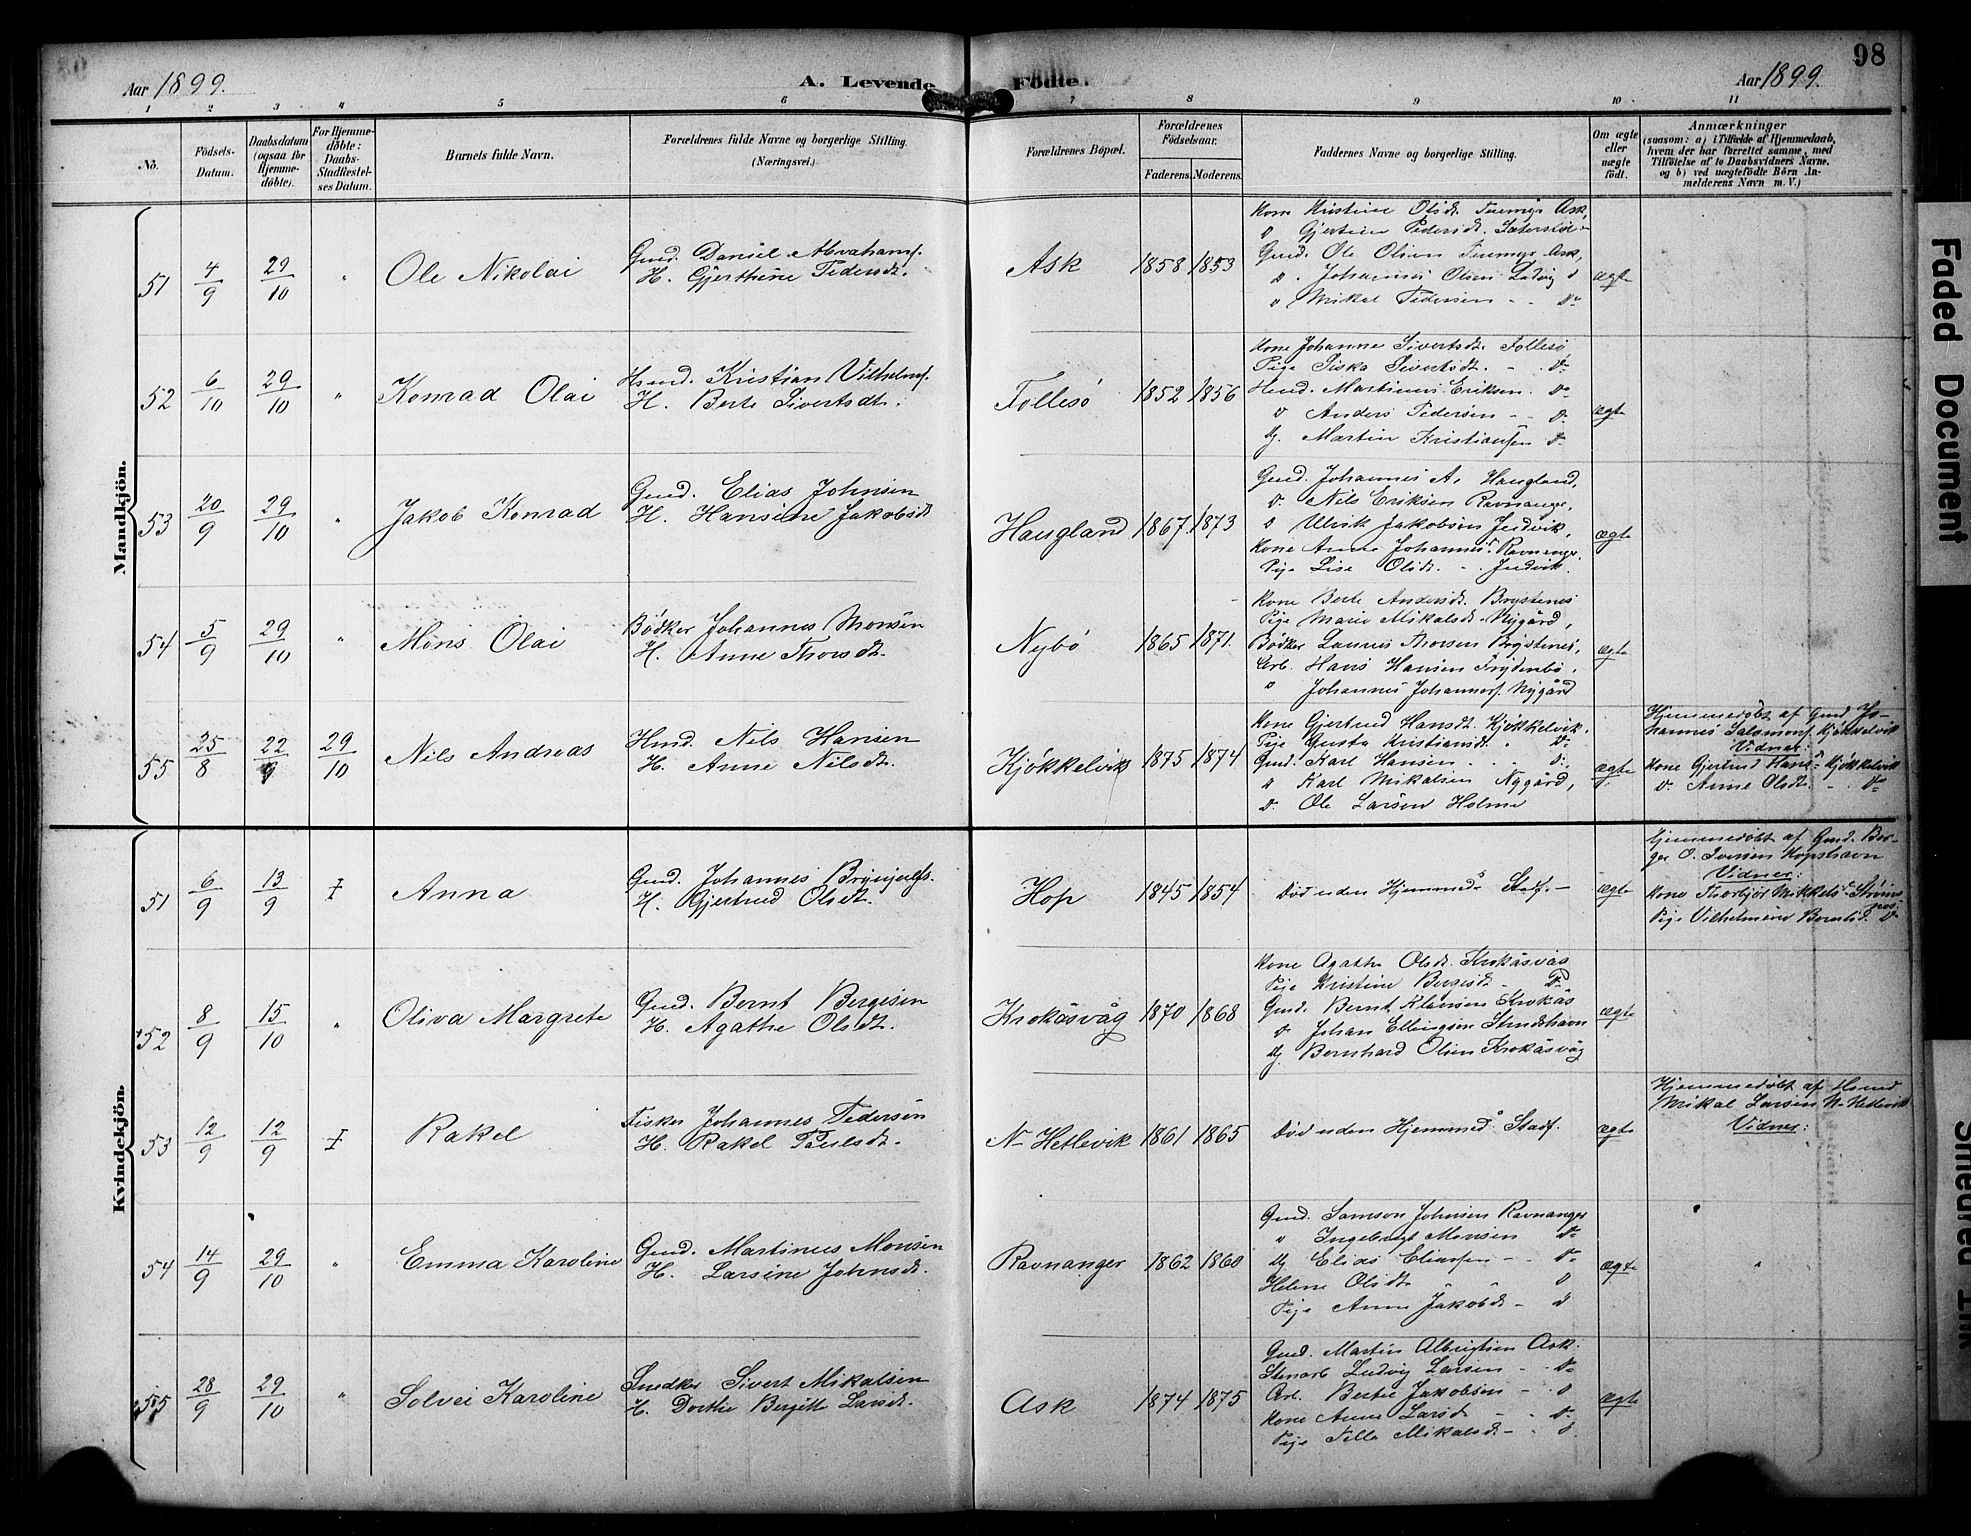 98
Aar 1899. A. Levende Fødte. Aar 1899.
1 2 3 4 5 6 7 8 9 10 11
No. Födsels-Datum. Daabsdatum (ogsaa for Hjemme-döbte). For Hjemme-döbte: Daabs-Stadfæstel-ses Datum. Barnets fulde Navn. Forældrenes fulde Navne og borgerlige Stilling. (Næringsvei.) Forældrenes Bopæl. Forældrenes Födselsaar. Faderens. Moderens. Faddernes Navne og borgerlige Stilling. Om ægte eller uægte födt. Anmærkninger (saasom: a) i Tilfælde af Hjemmedaab, hvem der har forrettet samme, med Tilföielse af to Daabsvidners Navne, og b) ved uægtefödte Börn An-melderens Navn m. V.)
Mandkjön.
51 4/9 29/10 " Ole Nikolai
Gmd. Daniel Abrahams.
H. Gjerthine Pedersdt.
Ask 1858 1853
Kone Kristine Olsdt. Ask,
" Gjertine Pedersdt.
Gmd. Ole Olsen Ask,
" Johannes Olsen
" Mikal Pedersen - - Do
ægte
52 6/10 29/10 " Konrad Olai
Hmd. Kristian Vilhelms.
H. Berte Sivertsdt.
Follesö 1852 1856
Kone Johanne Sivertsdt. Follesö
Pige Siska Sivertsdt. - Do
Hmd. Martinus Eriksen. Do
" Anders Pedersen - - Do
Ug. Martin Kristiansen Do
ægte
53 20/9 29/10 " Jakob Konrad
Gmd. Elias Johnsen
H. Hansine Jakobsdt
Haugland 1867 1873
Gmd. Johannes A. Haugland,
Do Nils Eriksen Ravnanger,
" Ulrik Jakobsen Indvik,
Kone Anna Johannesdt Ravnanger.
Pige Lise Olsdt. - - Indvik.
ægte
54 5/9 29/10 " Mons Olai
Bödker Johannes Monsen
H. Anne Thorsdt.
Nybö 1865 1871.
Kone Berte Andersdt. Brystenes
Pige Marie Mikalsdt. Nygård,
Bödker Lauris Thorsen Brystenes,
Arb. Hans Hansen Frydenbö.
" Johannes Johannes. Nygård
ægte
55 25/8 22/9 29/10 Nils Andreas
Hmd. Nils Hansen
H. Anne Nilsdt.
Kjökkelvik 1875 1874
Kone Gjertrud Hansdt. Kjökkelvik.
Pige Gusta Kristiansdt. Do
Gmd. Karl Hansen - - Do,
" Karl Mikalsen Nygård,
Do Ole Larsen Holme
ægte
Hjemmedöbt af Gmd Jo-
hannes Salamons. Kjökkelvik
Vidner:
Kone Gjertrud Hansdt Kjökkelvik
Do Anne Olsdt. - - Do
Kvindekjön.
51 6/9 13/9 Ŧ Anna
Gmd. Johannes Brynjulfs.
H. Gjertrud Olsdt.
Hop 1845 1854
Död uden Hjemmed. Stadf. -
ægte
Hjemmedöbt af Gmd. Bør-
ge O. Iversen Hopshavn
Vidner:
Kone Thorbjör Mikkelsdt Strøms
nes.
Pige Vilhelmine Berntsdt. Do
52 8/9 15/10 " Oliva Margrete
Gmd. Bernt Bergesen
H. Agathe Olsdt.
Krokåsvåg 1870 1868
Kone Agathe Olsdt. Krokåsvåg
Pige Kristine Bergesdt - Do
Gmd. Bernt Klausen Krokås
Do Johan Ellingsen
Ug. Bernhard Olsen Krokåsvåg
ægte
53 12/9 12/9 Ŧ Rakel
Fisker Johannes Pedersen
H. Rakel Paulsdt.
N. Hetlevik 1861 1865
Död uden Hjemmed. Stadf.
ægte
Hjemmedöbt af Hmd
Mikal Larsen N. Hetlevik
Vidner:
54 14/9 29/10 " Emma Karoline
Gmd. Martinus Monsen
H. Larsine Johnsdt.
Ravnanger 1862 1860
Gmd. Samson Johnsen Ravnanger
" Ingebrigt Monsen Do
Ug. Elias Eliassen - - Do
Helene Olsdt Do
Pige Anne Jakobsdt - Do
ægte "
55 28/9 29/10 " Solvei Karoline
Snedker Sivert Mikalsen
H. Dorthe Bergitte Larsdt.
Ask 1874 1875
Gmd. Martin Albrigtsen Ask.
Stenarb Ludvig Larsen - - Do
Arb. Bertie Jakobsen - - Do
Kone Anne Larsdt - - Do
Pige Nelle Mikalsdt - - Do
ægte
Faded Document
Smeared Ink